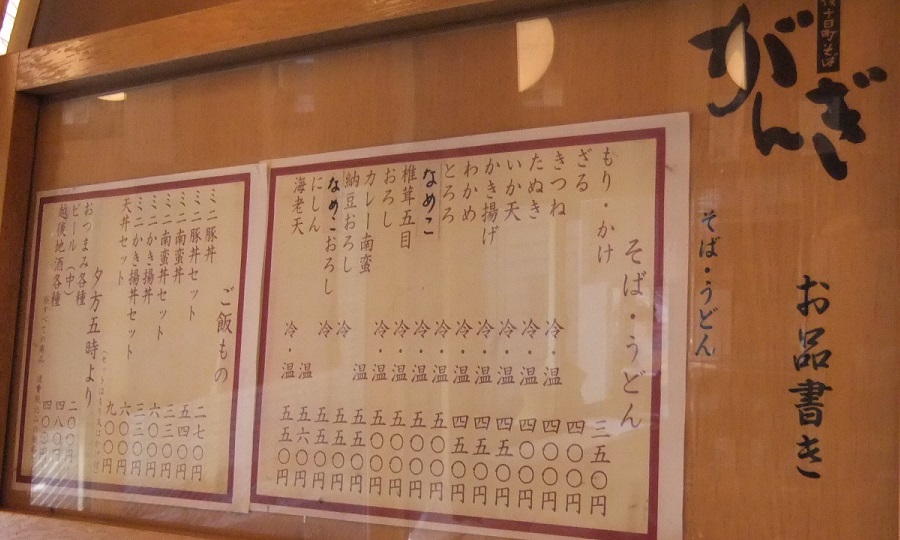 十日町そば
がんぎ
お品書き
そば・うどん
そば・うどん
もり・かけ 三五〇円
ざる 四〇〇円
きつね 冷・温 四〇〇円
たぬき 冷・温 四〇〇円
いか天 冷・温 四五〇円
かき揚げ 冷・温 四五〇円
わかめ 冷・温 四五〇円
とろろ 冷・温 五〇〇円
なめこ 冷・温 五〇〇円
椎茸五目 冷・温 五〇〇円
おろし 冷・温 五〇〇円
カレー南蛮 温 五五〇円
納豆おろし 冷 五五〇円
なめこおろし 冷 五五〇円
にしん 温 五六〇円
海老天 冷・温 五五〇円
ご飯もの
ミニ豚丼 二七〇円
ミニ豚丼セット 五四〇円
ミニ南蛮丼 三三〇円
ミニ南蛮丼セット 六〇〇円
ミニかき揚丼 三三〇円
ミニかき揚丼セット 六〇〇円
天丼セット 九〇〇円
夕方五時より
おつまみ各種 二〇〇円
ビール（中） 四八〇円
越後地酒各種 四〇〇円